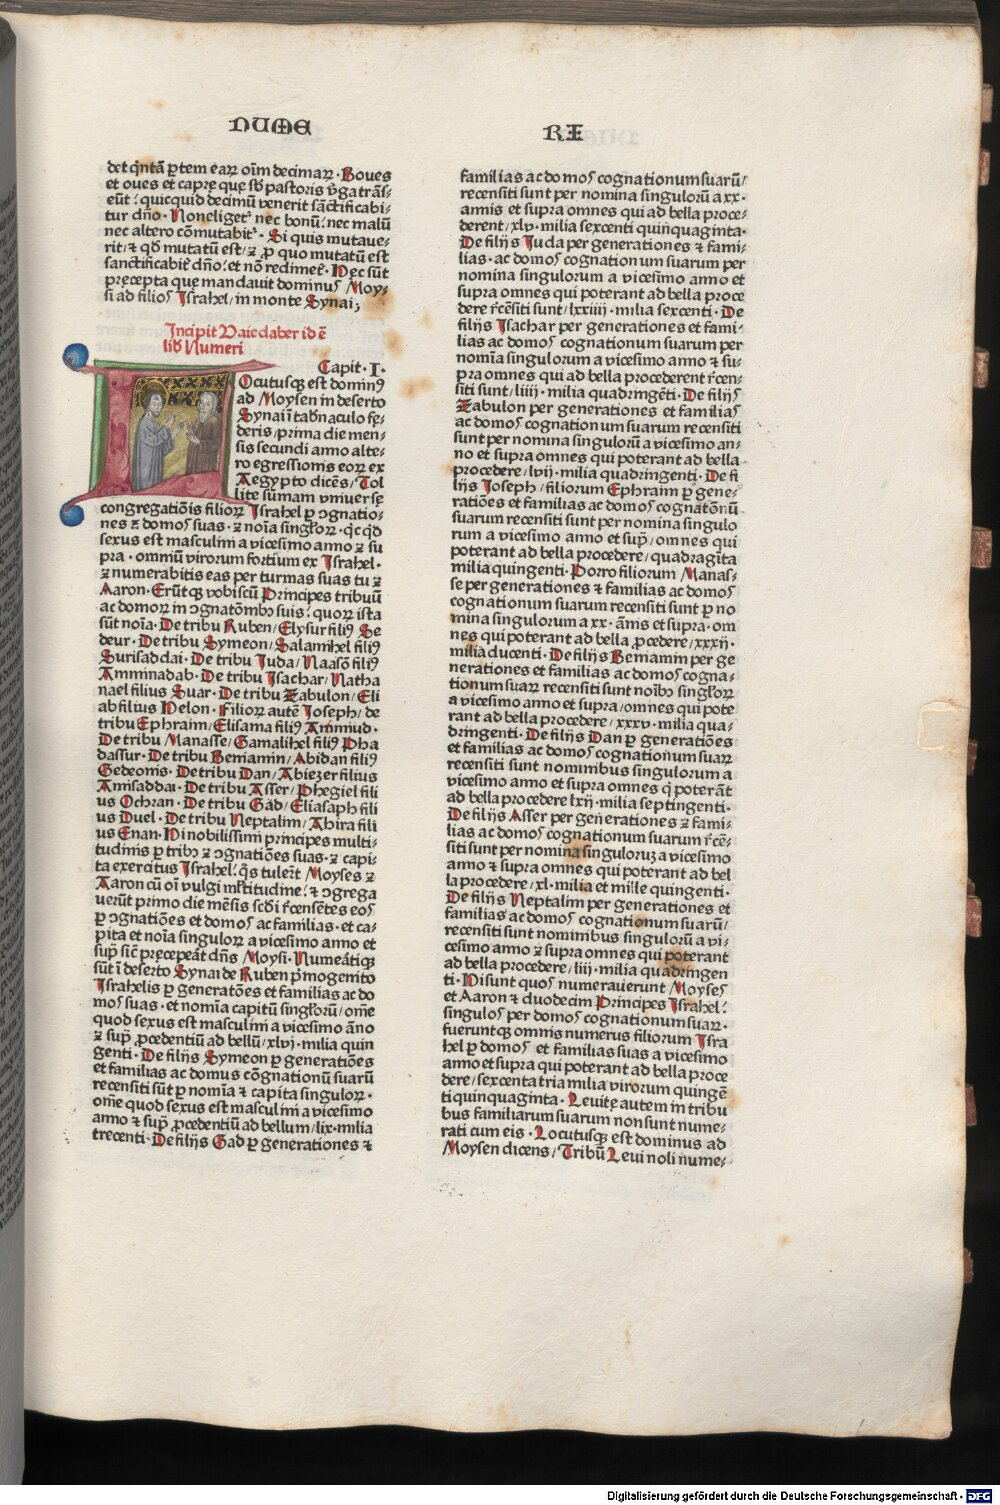 NUME
RI
det q̇ntā ꝑtem eaꝝ oīm decimaꝝ · Boues
et oues et capre que sb̄ pastoris v̄ga trās⸗
eūt ! quicquid decimū venerit sāctificabi⸗
tur dn̄o · Non eliget᷑ nec bonū ! nec malū
nec altero cōmutabit᷑ · Si quis mutaue⸗
rit / ⁊ qd̄ mutatū est / ⁊ ꝓ quo mutatū est
sanctificabit᷑ dn̄o ! et nō redimet᷑ · Hęc sūt
pręcepta quę mandauit dominus Moy⸗
si ad filios Jsrahel / in monte Synai ;
Jncipit Vaiedaber id ē
lib̄ Numeri
Capit · I ·
Ocutusqꝫ est dominꝰ
ad Moysen in deserto
Synai ī tab̄naculo fę⸗
deris / prima die men⸗
sis secundi anno alte⸗
ro egressionis eoꝝ ex
Aegypto dicēs / Tol
lite sūmam vniuerse
congregatiōis filioꝝ Jsrahel ꝑ ↄgnatio⸗
nes ⁊ domos suas · ⁊ noīa singl̓oꝝ · qc̓qd̓
sexus est masculini a vicesimo anno ⁊ su
pra · omniū virorum fortium ex Jsrahel ·
⁊ numerabitis eas per turmas suas tu ⁊
Aaron · Erūtqꝫ vobiscū Principes tribuū
ac domoꝝ in ↄgnatōnibꝰ suis ! quoꝝ ista
sūt noīa · De tribu Ruben / Elysur filiꝰ Se
deur · De tribu Symeon / Salamihel filiꝰ
Surisaddai · De tribu Juda / Naasō filiꝰ
Amminadab · De tribu Jsachar / Natha
nael filius Suar · De tribu Zabulon / Eli
ab filius Helon · Filioꝝ autē Joseph / de
tribu Ephraim / Elisama filiꝰ Ammiud ·
De tribu Manasse / Gamalihel filiꝰ Pha
dassur · De tribu Beniamin / Abidan filiꝰ
Gedeonis · De tribu Dan / Abiezer filius
Amisaddai · De tribu Asser / Phegiel fili
us Ochran · De tribu Gad / Eliasaph fili
us Duel · De tribu Neptalim / Ahira fili
us Enan · Hi nobilissimi principes multi⸗
tudinis ꝑ tribꝰ ⁊ ↄgnatiōes suas · ⁊ capi⸗
ta exercitus Jsrahel ! q̇s tuler̄t Moyses ⁊
Aaron cū oī vulgi ml̓titudine ! ⁊ ↄgrega
uerūt primo die mēsis scd̓i r̄censētes eos
ꝑ ↄgnatiōes et domos ac familias · et ca⸗
pita et noīa singuloꝝ a vicesimo anno et
sup̄ sic̄ pręcepeāt dn̄s Moysi · Numeātiqꝫ
sūt ī deserto Synai de Ruben p̄mogenito
Jsrahelis ꝑ generatōes et familias ac do
mos suas · et nomīa capitū singl̓orū / om̄e
quod sexus est masculini a vicesimo āno
⁊ sup̄ ꝓcedentiū ad bellū / xlvj · milia quin
genti · De filijs Symeon ꝑ generatiōes
et familias ac domus cōgnationū suarū
recensiti sūt ꝑ nomīa ⁊ capita singuloꝝ ·
om̄e quod sexus est masculini a vicesimo
anno ⁊ sup̄ ꝓcedentiū ad bellum / lix · milia
trecenti · De filijs Gad ꝑ generationes ⁊
familias ac domos cognationum suarū /
recensiti sunt per nomina singulorū a xx ·
annis et supra omnes qui ad bella proce⸗
derent / xlv · milia sexcenti quinquaginta ·
De filijs Juda per generationes ⁊ fami⸗
lias · ac domos cognationum suarum per
nomina singulorum a vicesimo anno et
supra omnes qui poterant ad bella proce
dere r̄cēsiti sunt / lxxiiij · milia sexcenti · De
filijs Jsachar per generationes et fami⸗
lias ac domos cognationum suarum per
nomīa singulorum a vicesimo anno ⁊ su⸗
pra omnes qui ad bella procederent r̄cen⸗
siti sunt / liiij · milia quadringēti · De filijs
Zabulon per generationes et familias
ac domos cognationum suarum recensiti
sunt per nomina singulorū a vicesimo an⸗
no et supra omnes qui poterant ad bella
procedere / lvij · milia quadringenti · De fi
lijs Joseph / filiorum Ephraim ꝑ gene⸗
ratiōes et familias ac domos cognatōnū
suarum recensiti sunt per nomina singulo
rum a vicesimo anno et sup̄ / omnes qui
poterant ad bella procedere / quadragīta
milia quingenti · Porro filiorum Manas⸗
se per generationes ⁊ familias ac domos
cognationum suarum recensiti sunt ꝑ no
mina singulorum a xx · ānis et supra · om
nes qui poterant ad bella ꝓcedere / xxxij ·
milia ducenti · De filijs Beniamin per ge
nerationes et familias ac domos cogna⸗
tionum suaꝝ recensiti sunt noībꝰ singl̓oꝝ
a vicesimo anno et supra / omnes qui pote
rant ad bella procedere / xxxv · milia qua⸗
dringenti · De filijs Dan ꝑ generatiōes
et familias ac domos cognationum suaꝝ
recensiti sunt nominibus singulorum a
vicesimo anno et supra omnes q̇ poterāt
ad bella procedere lxij · milia septingenti ·
De filijs Asser per generationes ⁊ fami⸗
lias ac domos cognationum suarum r̄cē⸗
siti sunt per nomina singuloruꝫ a vicesimo
anno ⁊ supra omnes qui poterant ad bel
la procedere / xl · milia et mille quingenti ·
De filijs Neptalim per generationes et
familias ac domos cognationum suarū /
recensiti sunt nominibus singulorū a vi⸗
cesimo anno ⁊ supra omnes qui poterant
ad bella procedere / liij · milia quadringen
ti · Hi sunt quos numerauerunt Moyses
et Aaron ⁊ duodecim Principes Jsrahel !
singulos per domos cognationum suaꝝ ·
fueruntqꝫ omnis numerus filiorum Jsra
hel ꝑ domos et familias suas a vicesimo
anno et supra qui poterant ad bella proce
dere / sexcenta tria milia virorum quingē
ti quinquaginta · Leuitę autem in tribu
bus familiarum suarum non sunt nume⸗
rati cum eis · Locutusqꝫ est dominus ad
Moysen dicens / Tribū Leui noli nume⸗
Digitalisierung gefördert durch die Deutsche Forschungsgemeinschaft - DFG